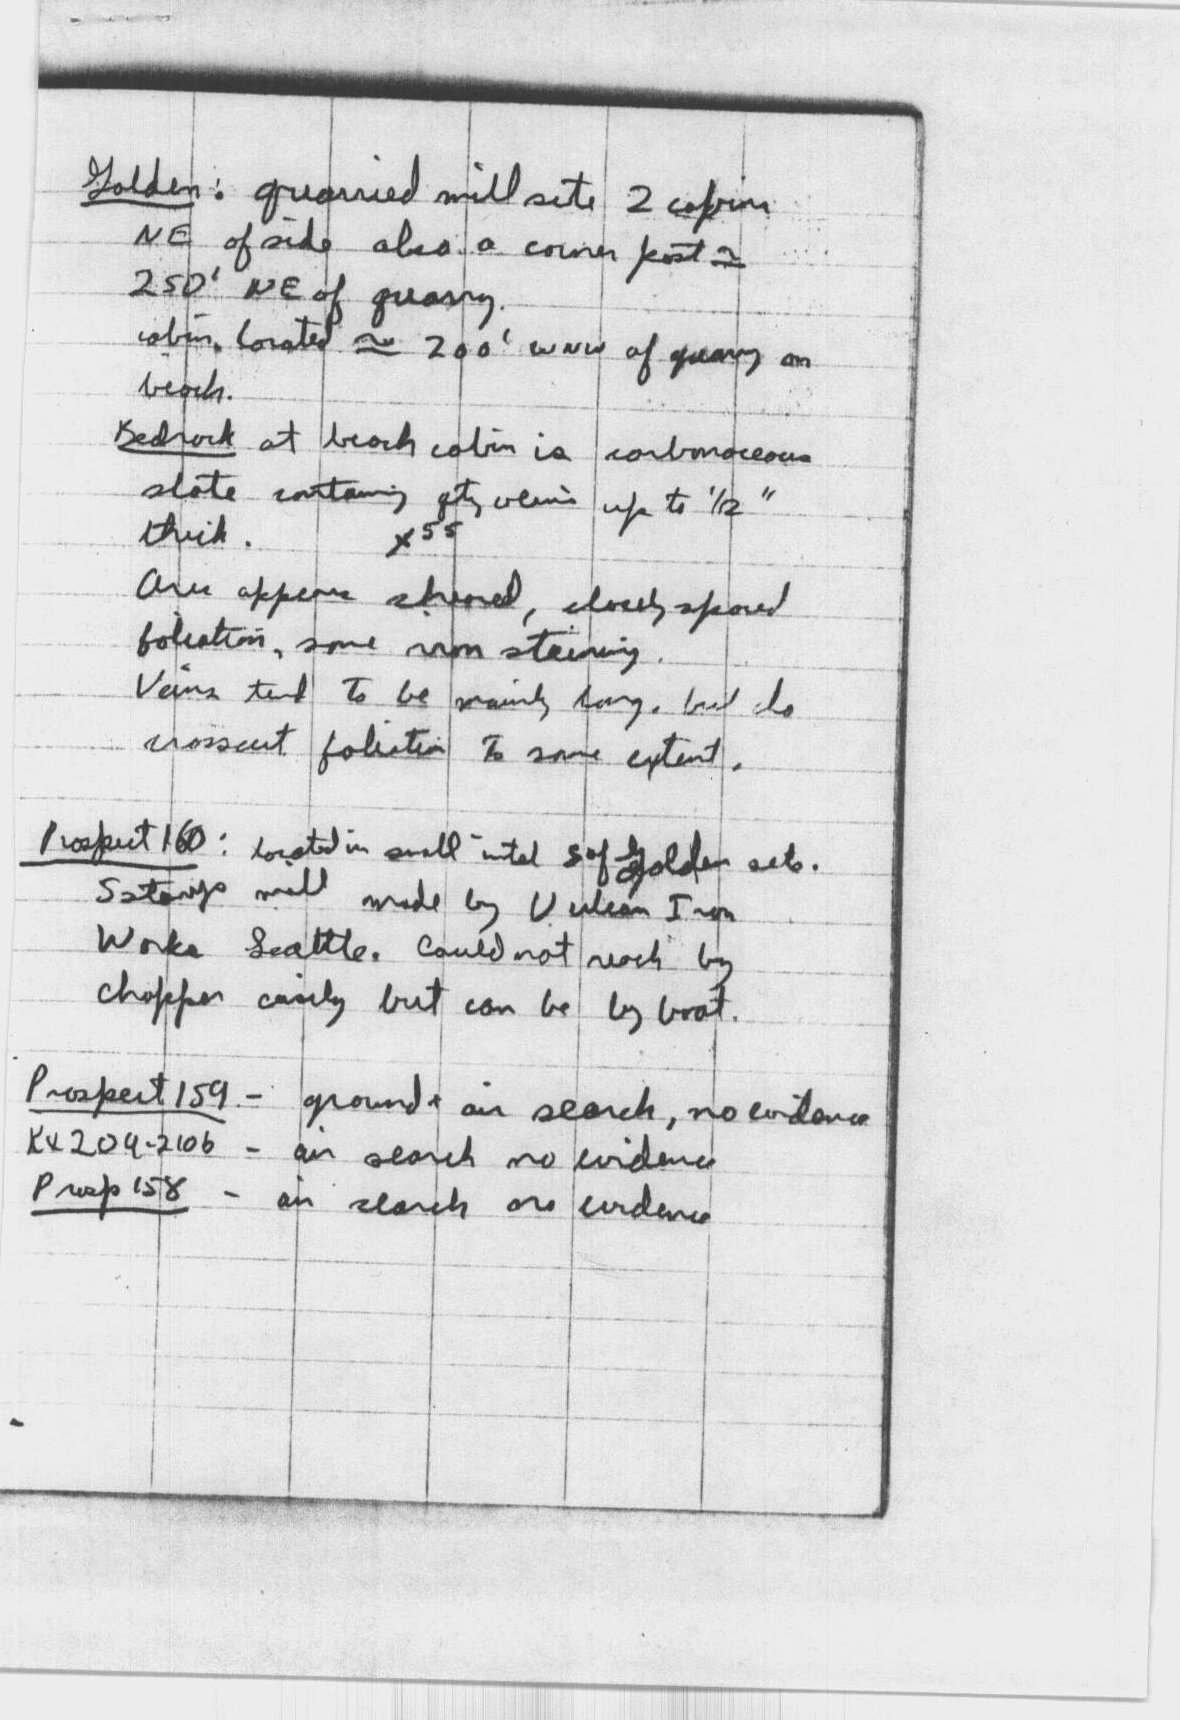 Golden: quarried mill site 2 cabins
NE of side also a corner post ≃
250' NE of quarry.
cabin located ≃ 200' WNW of quarry on
beach.
Bedrock at beach cabin is carbonaceous
slate containing qtz veins up to 1/2"
thick. x55
Area appears sheared, closely spaced
foliation, some iron staining.
Veins tend to be mainly but do
crosscut foliation to some extent.
Prospect 160: located in small inlet S of Golden
5 stamp mill made by Vulcan Iron
Works Seattle. Could not reach by
chopper easily but can be by boat.
Prospect 159 - ground + air search, no evidence
Kx 204-210b - air search no evidence
Prosp 158 - air search no evidence